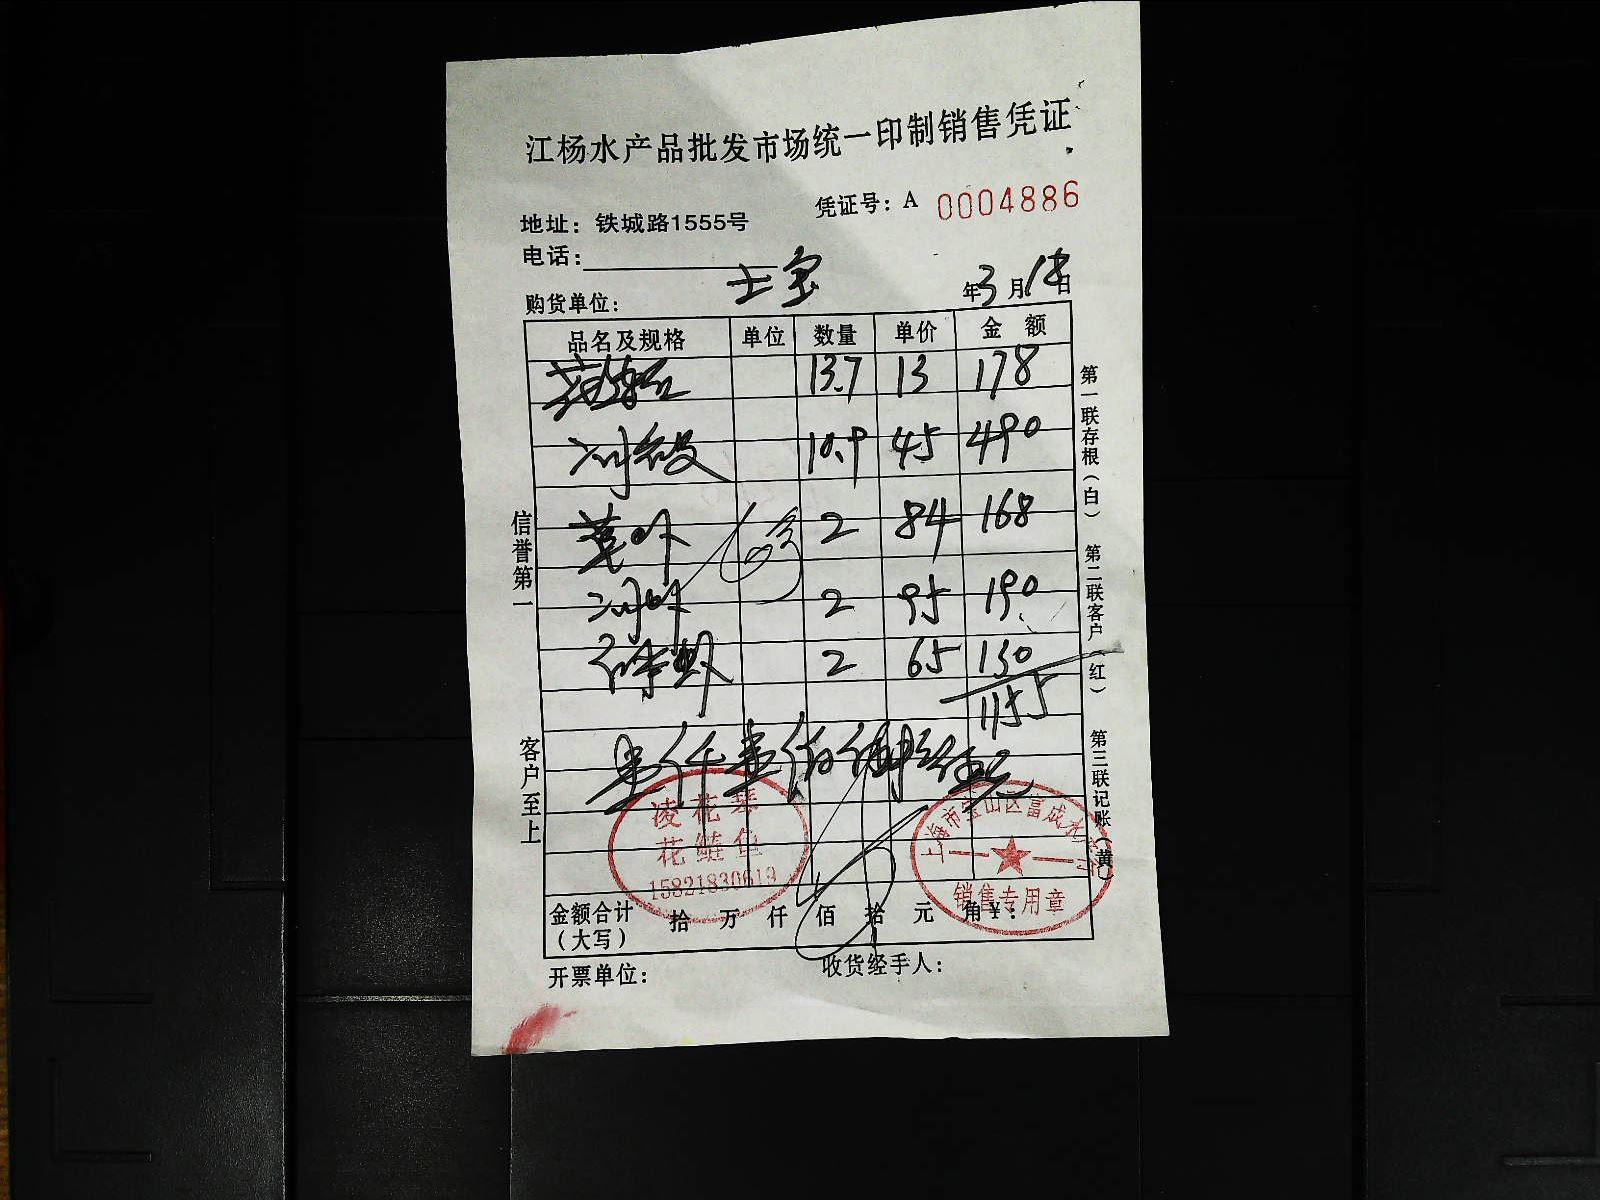 江杨水产品批发市场统一印制销售凭证
凭证号：A 0004886
地址：铁城路1555号
电话：
购货单位： 年3月18日
品名及规格 单位 数量 单价 金额
13.7 13 178
10.9 45 490
2 84 168
2 95 190
2 65 130
1155
壹仟壹佰伍拾伍元
凌花琴
花鲢鱼
15821830619
上海市宝山区富成水
销售专用章
金额合计（大写） 拾 万 仟 佰 拾 元 角￥：
开票单位： 收货经手人：
信誉第一
客户至上
第一联存根（白） 第二联客户（红） 第三联记账（黄）